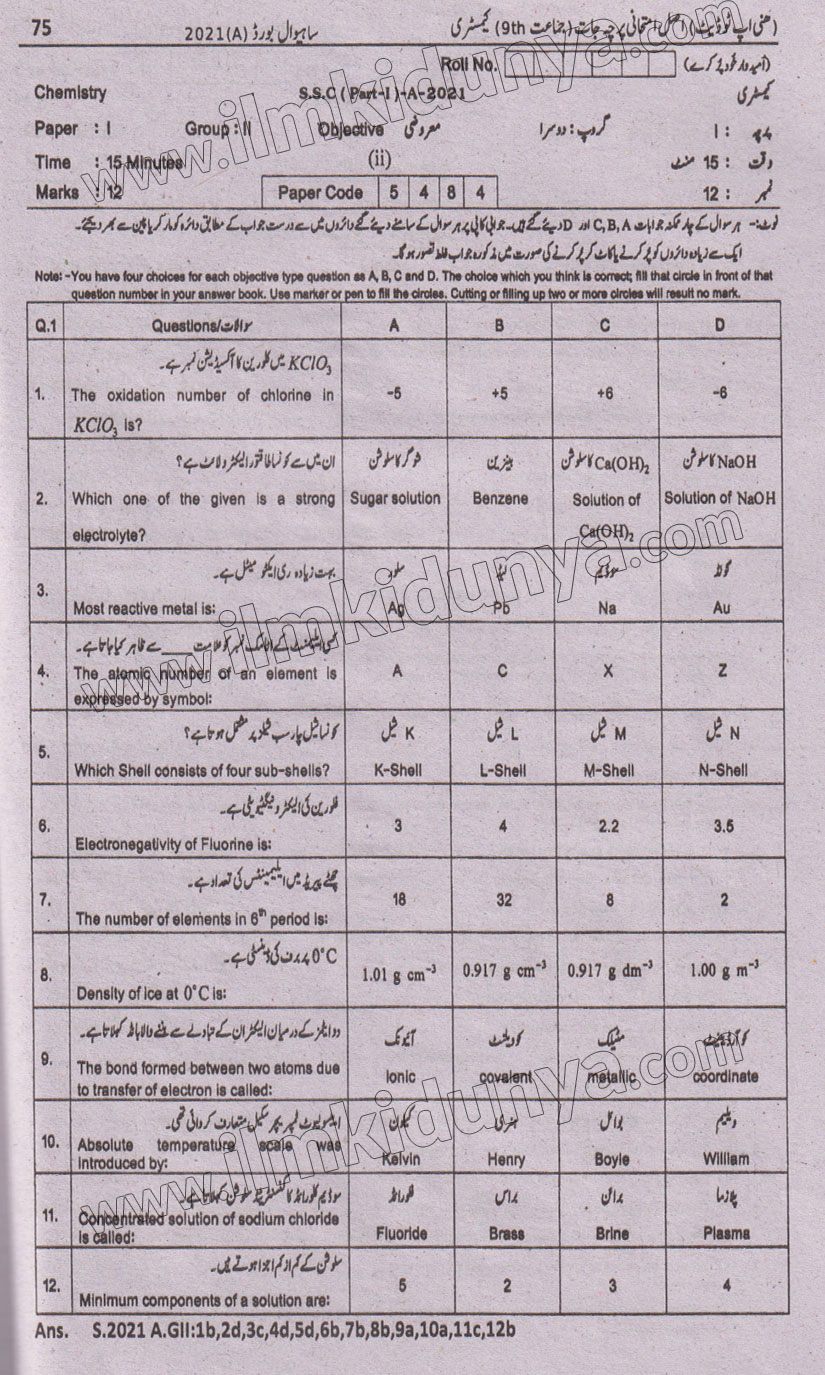 75 ساہیوال بورڈ 2021(A) (ھنی اپ ٹو ڈیٹ) (حل امتحانی پرچہ جات) (جماعت 9th) کیمسٹری
Roll No. (امیدوار خود پُر کرے)
Chemistry S.S.C ( Part-I )-A-2021 کیمسٹری
Paper : I Group : II Objective معروضی گروپ : دوسرا پرچہ : I
Time : 15 Minutes (ii) وقت : 15 منٹ
Marks : 12 Paper Code 5 4 8 4 نمبر : 12
نوٹ:- ہر سوال کے چار ممکنہ جوابات C, B, A اور D دیئے گئے ہیں۔ جوابی کاپی پر ہر سوال کے سامنے دیئے گئے دائروں میں سے درست جواب کے مطابق دائرہ کو مارکر یا پین سے بھر دیجئے۔
ایک سے زیادہ دائروں کو پُر کرنے یا کاٹ کر پُر کرنے کی صورت میں مذکورہ جواب غلط تصور ہو گا۔
Note: -You have four choices for each objective type question as A, B, C and D. The choice which you think is correct; fill that circle in front of that
question number in your answer book. Use marker or pen to fill the circles. Cutting or filling up two or more circles will result no mark.
Q.1 Questions/سوالات A B C D
KClO₃ میں کلورین کا آکسیڈیشن نمبر ہے۔
1. The oxidation number of chlorine in –5 +5 +6 –6
KClO₃ is?
ان میں سے کونسا طاقتور الیکٹرولائٹ ہے؟ شوگر کا سلوشن بینزین Ca(OH)₂ کا سلوشن NaOH کا سلوشن
2. Which one of the given is a strong Sugar solution Benzene Solution of Solution of NaOH
electrolyte? Ca(OH)₂
3. بہت زیادہ ری ایکٹو میٹل ہے۔ سلور لیڈ سوڈیم گولڈ
Most reactive metal is: Ag Pb Na Au
کسی ایلیمنٹ کے اٹامک نمبر کو علامت ____ سے ظاہر کیا جاتا ہے۔
4. The atomic number of an element is A C X Z
expressed by symbol:
5. کونسا شیل چار سب شیلز پر مشتمل ہوتا ہے؟ K شیل L شیل M شیل N شیل
Which Shell consists of four sub-shells? K-Shell L-Shell M-Shell N-Shell
فلورین کی الیکٹرونیگٹیویٹی ہے۔
6. 3 4 2.2 3.5
Electronegativity of Fluorine is:
چھٹے پیریڈ میں ایلیمینٹس کی تعداد ہے۔
7. 18 32 8 2
The number of elements in 6th period is:
0°C پر برف کی ڈینسٹی ہے۔
8. 1.01 g cm⁻³ 0.917 g cm⁻³ 0.917 g dm⁻³ 1.00 g m⁻³
Density of ice at 0°C is:
دو ایٹمز کے درمیان الیکٹران کے تبادلے سے بننے والا بانڈ کہلاتا ہے۔ آئیونک کوویلنٹ میٹیلک کوآرڈینیٹ
9. The bond formed between two atoms due Ionic covalent metallic coordinate
to transfer of electron is called:
ایبسولیوٹ ٹمپریچر سکیل متعارف کروائی تھی۔ کیلون ہنری بوائل ولیم
10. Absolute temperature scale was Kelvin Henry Boyle William
introduced by:
سوڈیم کلورائڈ کا کنسنٹریٹڈ سلوشن کہلاتا ہے۔ فلورائڈ براس برائن پلازما
11. Concentrated solution of sodium chloride Fluoride Brass Brine Plasma
is called:
سلوشن کے کم از کم اجزا ہوتے ہیں۔
12. 5 2 3 4
Minimum components of a solution are:
Ans. S.2021 A.GII:1b,2d,3c,4d,5d,6b,7b,8b,9a,10a,11c,12b
www.ilmkidunya.com
www.ilmkidunya.com
www.ilmkidunya.com